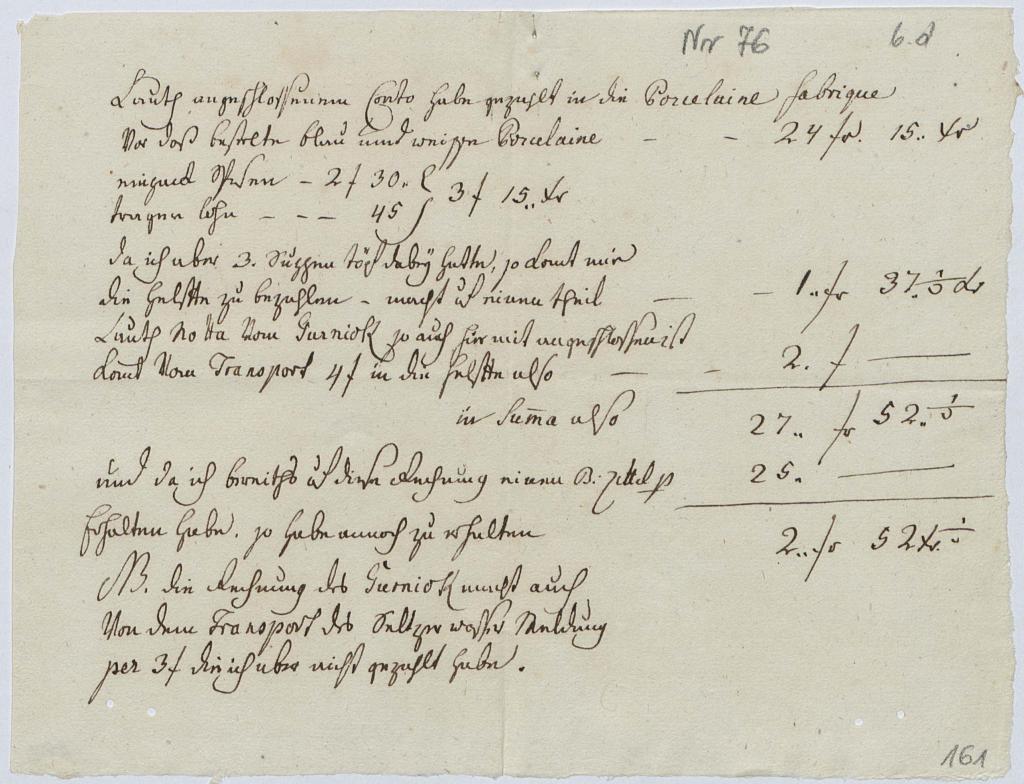 Nro 76
6.d
Lauth angeschlossenem Conto habe gezahlt in die Porcelaine fabrique
Vor daß bestelte blau und weisse Porcelaine — — 24 fr. 15.. Xr
Spesen – 2 f 30..
trager lohn – – – 45 } 3 f 15.. Xr
da ich aber 3. Suppen töpf dabeÿ hatte, so komt mir
die helffte zu bezahlen – macht uf einen theil — – 1.. fr 37.. ½ Xr
Lauth Notta Vom Gurniok so auch hiermit angeschlossen ist
komt Vom Transport 4 f in die helffte also — – 2. f —
in Summa also 27.. fr 52.. ½
und da ich bereiths uf diese Rechnung einen B: zettel p 25. —
Erhalten habe. so habe annoch zu erhalten 2.. fr 52 Xr. ½
NB. die Rechnung des Gurniok macht auch
Von dem Transport des Seltzer wasser Meldung
per 3 f die ich aber nicht gezahlt habe.
161